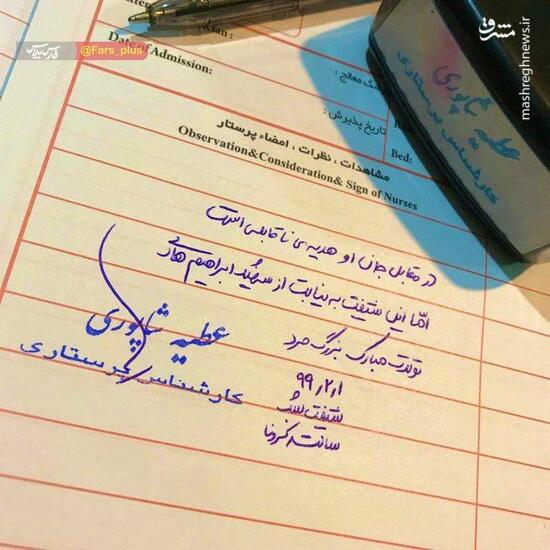 @Fars_plus
مشرق
mashreghnews.ir
Date of Admission:
پزشک معالج :
تاریخ پذیرش :
Bed:
مشاهدات ، نظرات ، امضاء پرستار
Observation&Consideration& Sign of Nurses
عطیه شاپوری
کارشناس پرستاری
در مقابل جان او هدیه‌ی ناقابلی است
اما این شیفت به نیابت از شهید ابراهیم هادی
تولدت مبارک بزرگ مرد
۹۹/۲/۱
شیفت شب
سانتر کرونا
عطیه شاپوری
کارشناس پرستاری